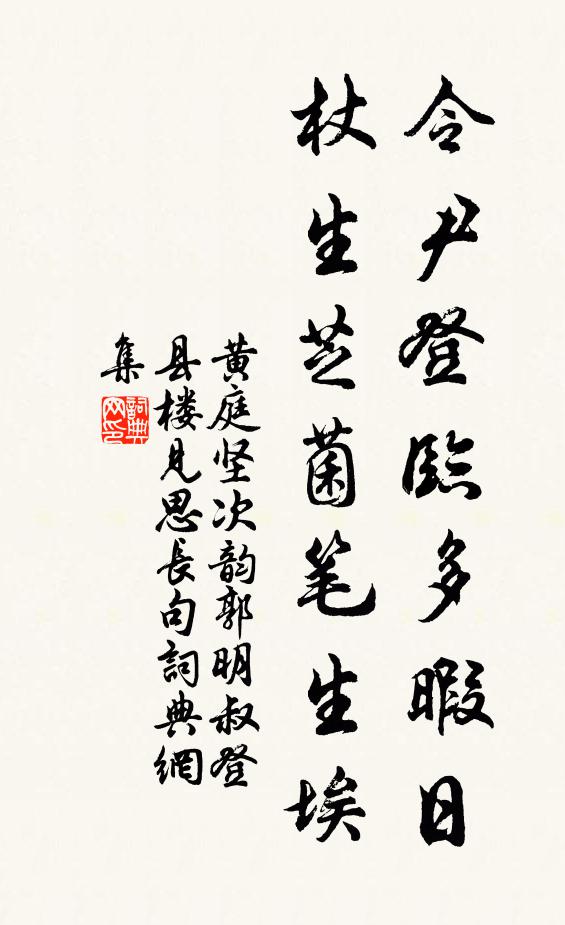 令尹登臨多暇日
杖生芝菌笔生埃
黄庭坚次韵郭明叔登
县楼見思長句詞典網
集
詞典
网印